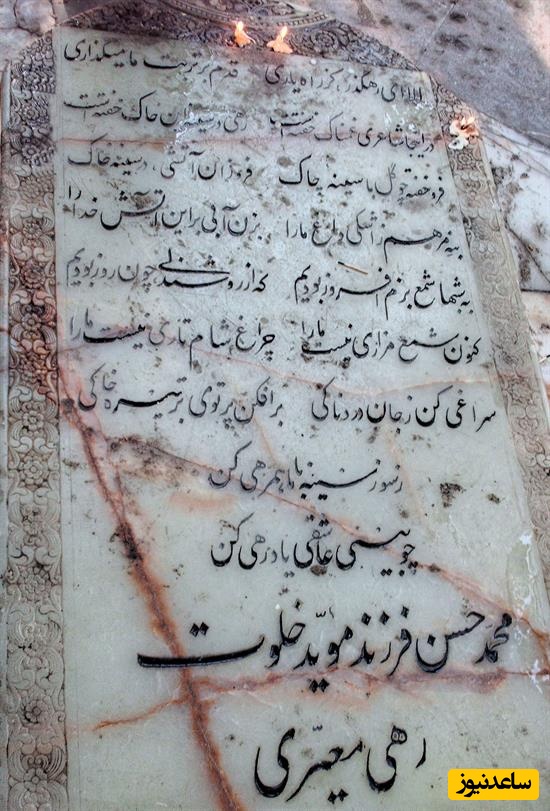 الا ای رهگذر کز راه یاری قدم بر تربت ما میگذاری
در اینجا شاعری غمناک خفته است رهی در سینهٔ این خاک خفته است
فرو خفته چو گل با سینه چاک فروزان آتشی در سینه خاک
بنه مرهم ز اشکی داغ ما را بزن آبی بر این آتش خدا را
به شبها شمع بزم افروز بودیم که از روشندلی چون روز بودیم
کنون شمع مزاری نیست ما را چراغ شام تاری نیست ما را
سراغی کن ز جان دردناکی برافکن پرتوی بر تیره خاکی
ز سوز سینه با ما همرهی کن
چو بینی عاشقی یاد رهی کن
محمد حسن فرزند مویّد خلوت
رهی معیّری
ساعدنیوز